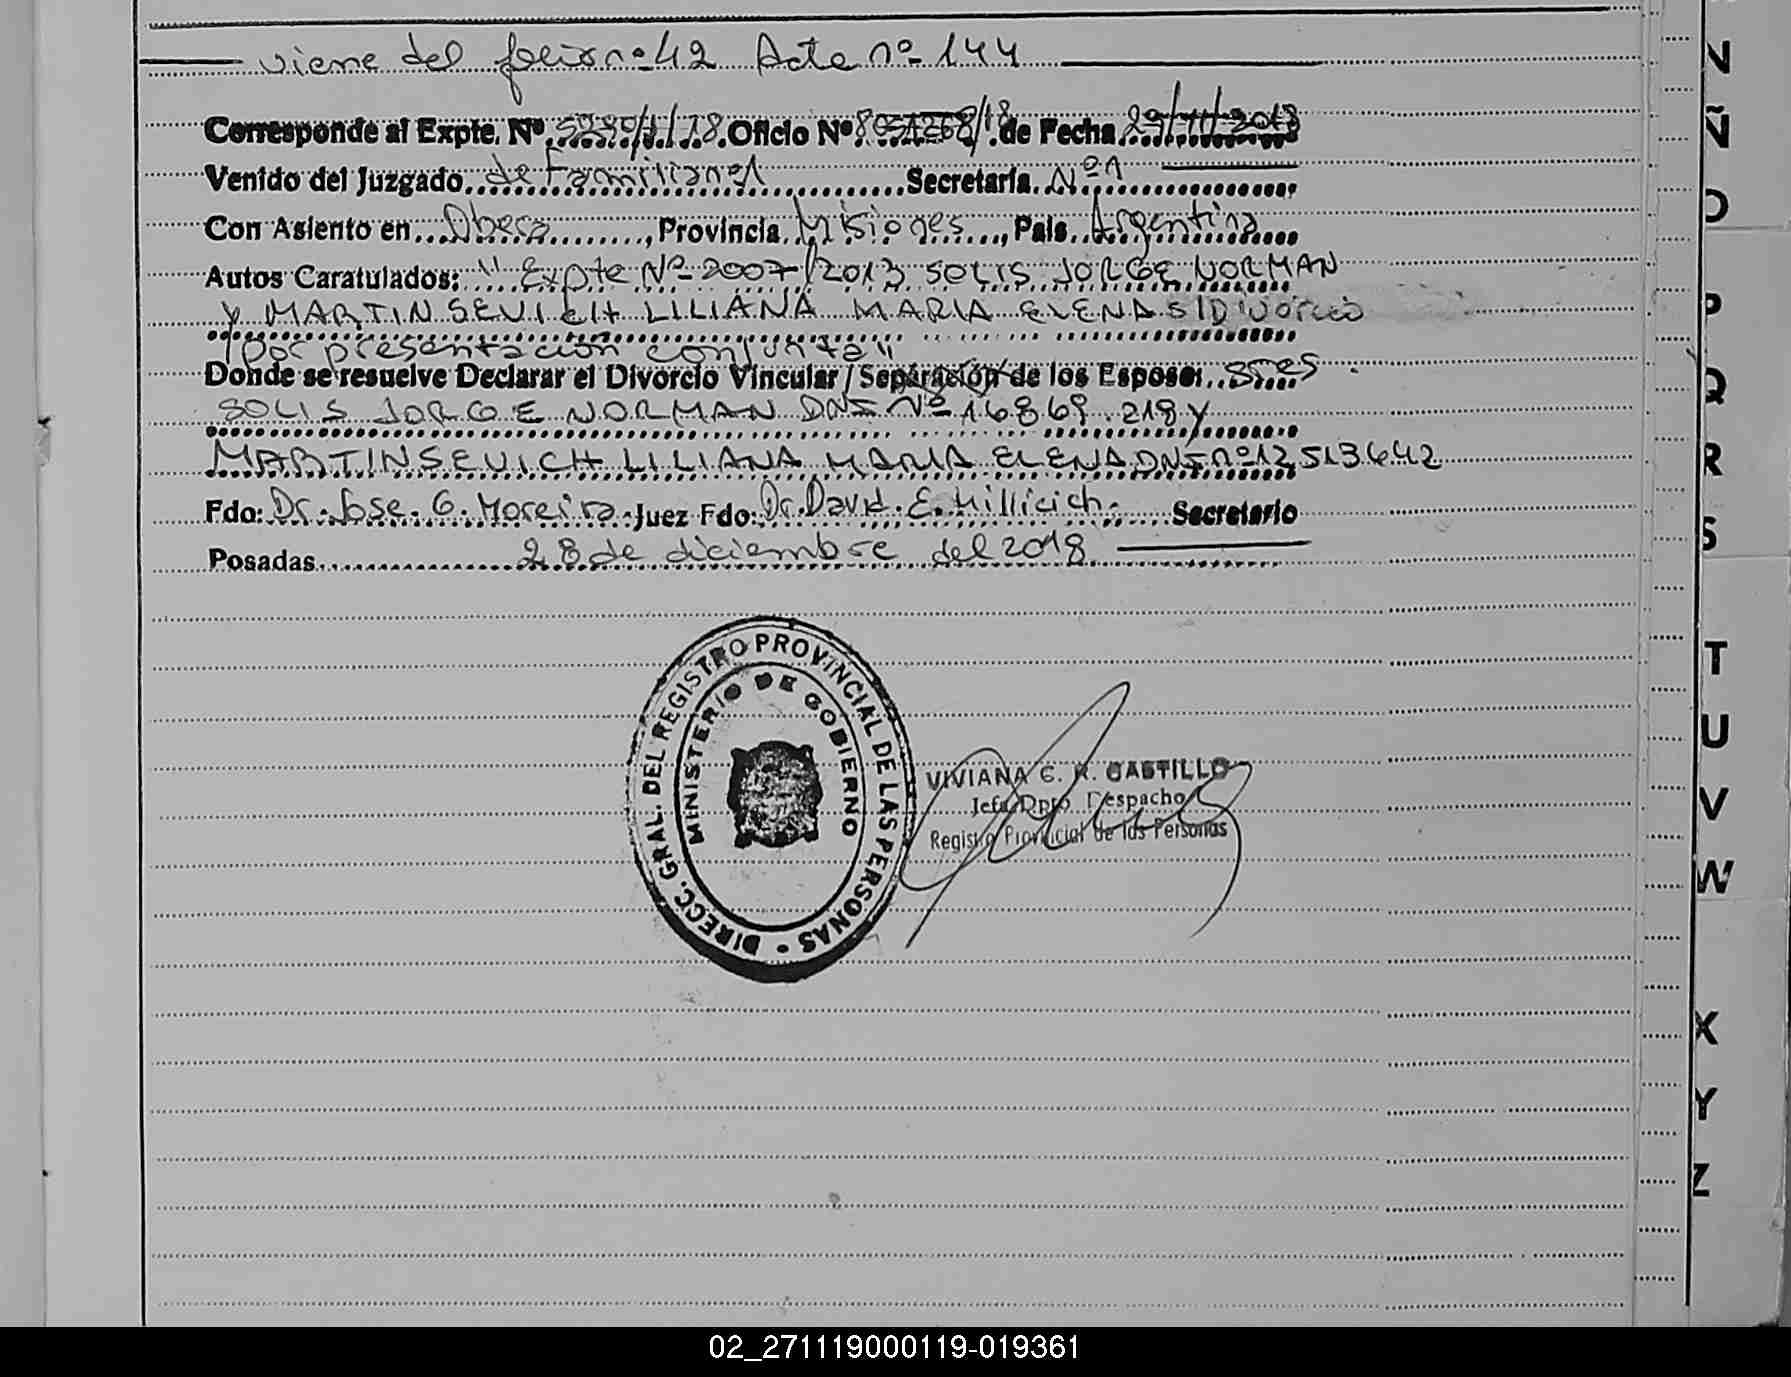 viene del folio nº 42 Acta nº 144
Corresponde al Expte. Nº 5990/J/18. Oficio Nº 8051268/18 de Fecha 29/11/2018
Venido del Juzgado de Familia nº1 Secretaría Nº 1
Con Asiento en Obera, Provincia Misiones, Pais Argentina
Autos Caratulados: "Expte Nº 2007/2013 SOLIS JORGE NORMAN
Y MARTINSEVICH LILIANA MARIA ELENA S/DIVORCIO
por presentación conjunta"
Donde se resuelve Declarar el Divorcio Vincular / Separación de los Esposos sres
SOLIS JORGE NORMAN DNI Nº 16.869.218 y
MARTINSEVICH LILIANA MARIA ELENA DNI nº 12513642
Fdo: Dr. Jose. G. Moreira. Juez Fdo: Dr. David. E. Millicich. Secretario
Posadas 28 de diciembre del 2018
DIRECC. GRAL. DEL REGISTRO PROVINCIAL DE LAS PERSONAS
MINISTERIO DE GOBIERNO
VIVIANA C. R. CASTILLO
Jefa Dpto Despacho
Registro Provincial de las Personas
N
Ñ
O
P
Q
R
S
T
U
V
W
X
Y
Z
02_271119000119-019361